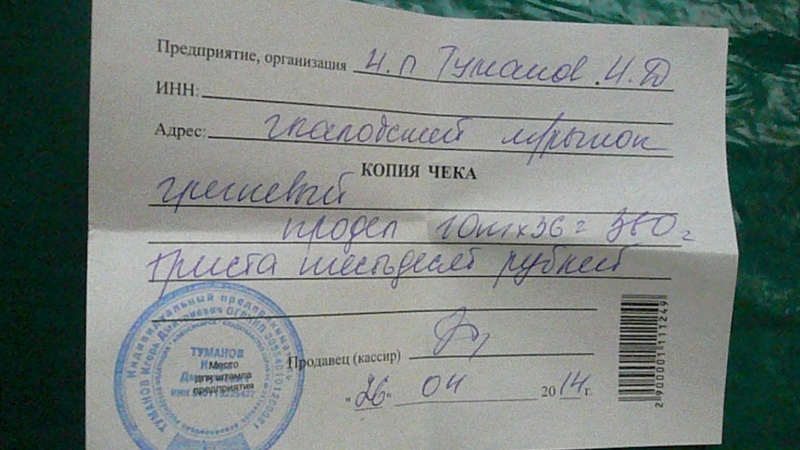 Предприятие, организация И.П Туманов.И.Д
ИНН:
Адрес: м/рынок
КОПИЯ ЧЕКА
гречневый
продел 10кг х 36 = 360 =
триста шестьдесят рублей
Продавец (кассир)
"26" 04 2014 г.
Индивидуальный предприниматель
ТУМАНОВ Игорь Дмитриевич ОГРНИП
ТУМАНОВ
Место
для штампа
предприятия
2900001111249